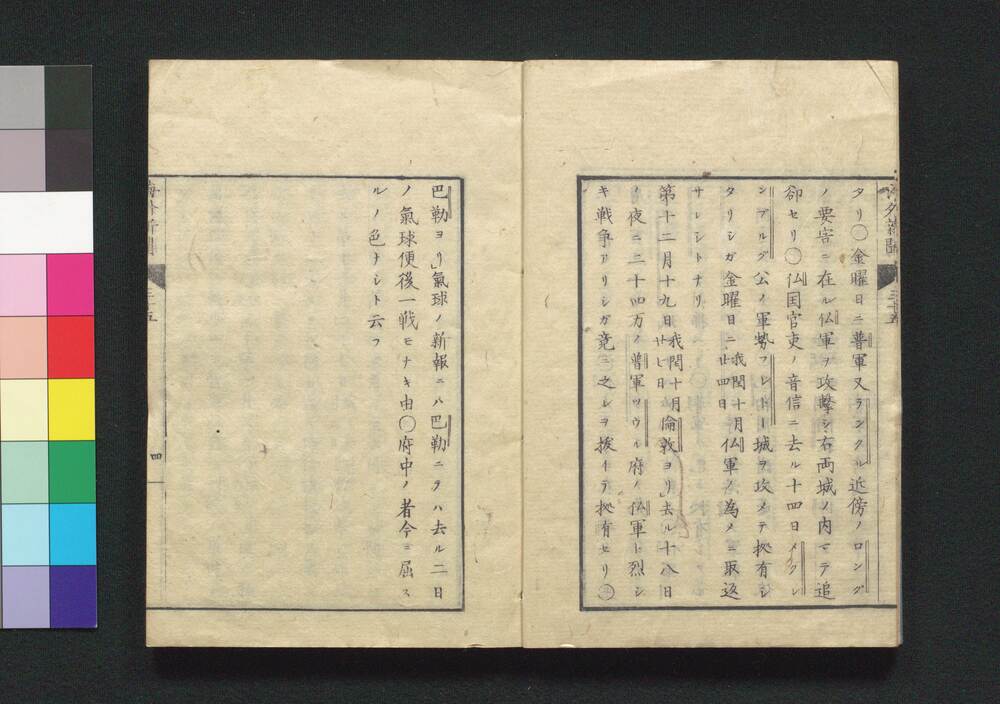 タリ○金曜日ニ普軍又ランクル近傍ノロング
ノ要害ニ在ル仏軍ヲ攻撃シ右両城ノ内マテ追
却セリ○仏国官吏ノ音信ニ去ル十四日メクレ
ンブルグ公ノ軍勢フレトー城ヲ攻メテ拠有シ
タリシガ金曜日ニ我閏十月廿四日仏軍ノ為メニ取返
サレシトナリ
第十二月十九日我閏十月廿七日倫敦ヨリ」去ル十八日
ノ夜ニ二十四万ノ普軍ツウル府ノ仏軍ト烈シ
キ戦争アリシガ竟ニ之レヲ抜イテ拠有セリ○
巴勒ヨリ」氣球ノ新報ニハ巴勒ニテハ去ル二日
ノ氣球便後一戦モナキ由○府中ノ者今ニ屈ス
ルノ色ナシト云フ
海外新聞
四